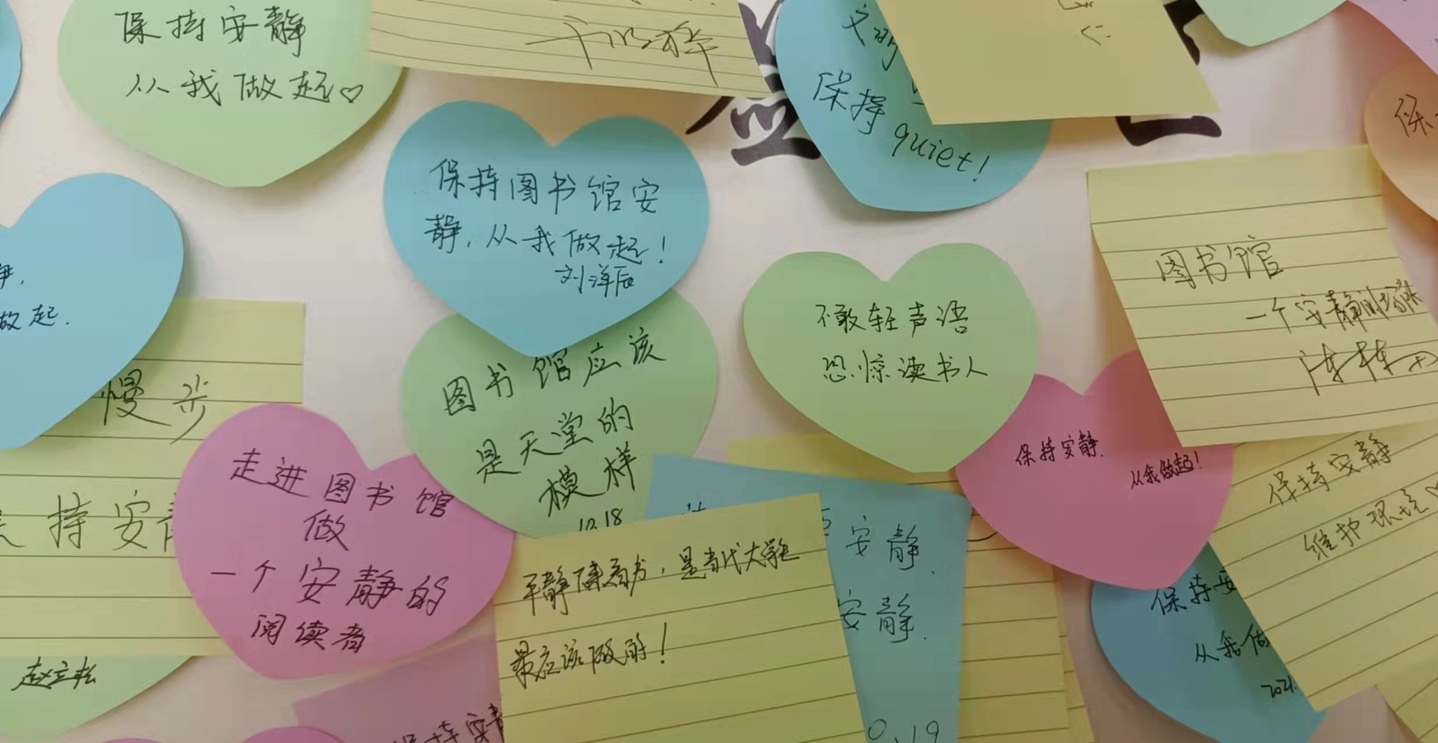 保持安静
从我做起♡
保持
quiet!
保持图书馆安
静,从我做起!
图书馆
一个安静的
不敢轻声语
恐惊读书人
做起.
慢步
图书馆应该
是天堂的
模样
10.18
走进图书馆
做
一个安静的
阅读者
保持安静.
从我做起!
保持安静
维护环境♡
持安
安静.
安静.
是当代大学生
最应该做的!
保持安
从我做
2021.
赵立松
保持安静
0.19